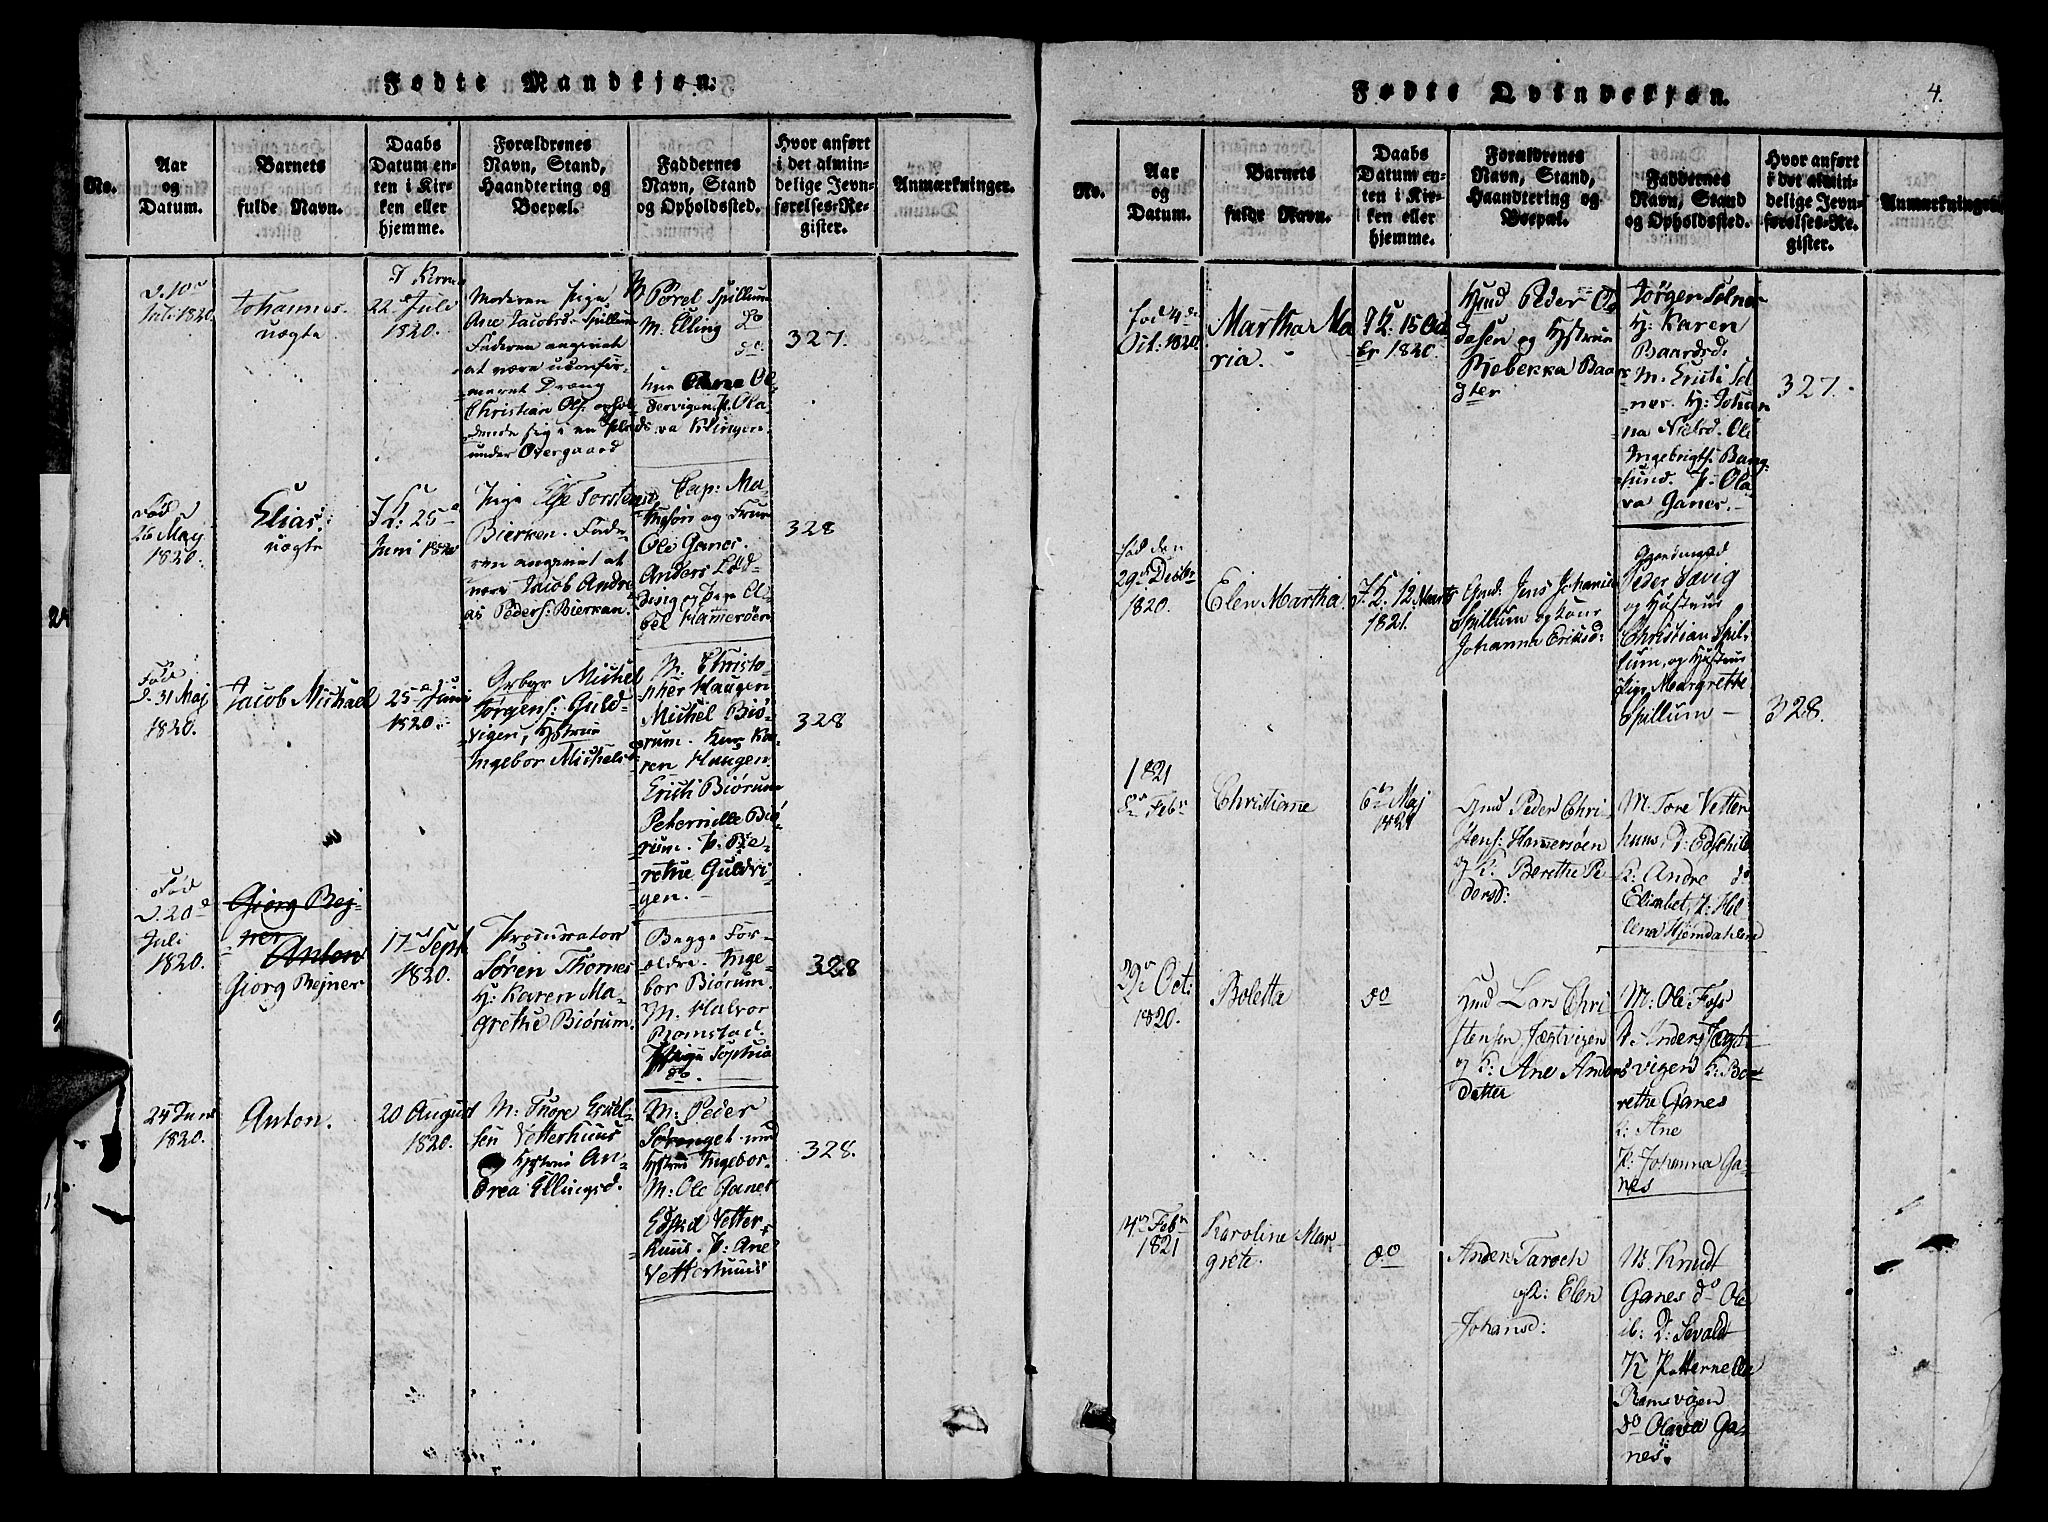 Fødte Mandkjøn.
No.
Aar
og
Datum.
Barnets
fulde Navn.
Daabs
Datum en-
ten i Kir-
ken eller
hjemme.
Forældrenes
Navn, Stand,
Haandtering og
Boepæl.
Faddernes
Navn, Stand
og Opholdssted.
Hvor anført
i det almin-
delige Jevn-
førelses-Re-
gister.
Anmærkninger.
d. 10de
Juli 1820.
Johannes.
uægte
22de Juli
1820.
Moderen Pige
Ane Jacobsd. Spillum
Faderen angivet
at være ukonfir-
meret Dreng
Christian Ols. ophol-
dende sig i en Plads
under Overgaard
Porel Spillum
M. Elling Do
do.
dervigen. P. Ola-
va Klingen.
327.
Fød d
26 May
1820.
Elias.
uægte
J K: 25de
Juni 1820
Pige Else Torstensd.
Bierken. Fade-
ren angivet at
være Jacob Andre-
as Peders: Bierkan.
Cap: Ma-
thesen og Frue
Ole Ganes.
Anders Lød-
ding og Pige Eli-
bet Hammerøen
328
Fød
d. 31 Maj
1820.
Jacob Michael
25de Juni
1820.
Grbgr Michel
Jørgens: Guld-
vigen, Hystrue
Ingebor Michelsd.
M. Christo-
pher Haugen
Michel Biø-
rum. Kone Ka-
ren Haugen.
Erich Biørum
Peternille Biø-
rum. P: Be-
rethe Guldvi-
gen.
328
Fød
d. 20de
Juli
1820.
Giorg Rej-
ner
Anton
Giorg Rejner
17de Sept.
1820.
Procurator
Søren Thomes
H: Karen Ma-
grethe Biørum.
Begge For-
ældre. Inge-
bor Biørum.
M. Halvor
Romstad.
Pige Sophia
do.
328
24 Juni
1820.
Anton.
20 August
1820.
M: Thore Erich-
sen Vetterhuus
og Hystrue An-
drea Ellingsd.
M: Peder
Sørenget med
Hystrue Ingebor.
M: Ole Ganes
Edskel Vetter-
huus. P: Ane
Vetterhuus
328.
Fødte Qvindekjøn.
4.
No.
Aar
og
Datum.
Barnets
fulde Navn.
Daabs
Datum en-
ten i Kir-
ken eller
hjemme.
Forældrenes
Navn, Stand,
Haandtering og
Boepæl.
Faddernes
Navn, Stand
og Opholdssted.
Hvor anført
i det almin-
delige Jevn-
førelses-Re-
gister.
Anmærkninger.
fød 4de
Oct: 1820.
Martha Ma-
ria.
J K: 15 Oct
br 1820.
Hmd Peder O-
desen og Hystrue
Rebekka Baar-
dster
Jørgen Selnes
H: Karen
Baardsd.
M. Erich Sel-
nes. H: Johan-
na Nielsd. Ole
Ingebrigts. Bang-
sund. P. Ola-
va Ganes.
327.
fød den
29de Decbr
1820.
Elen Martha.
J. K: 12 Marts
1821.
Gmd: Jens Johannes
Spillum og Kone
Johanna Eriksd:
Gaardmand
Peder Sævig
og Hystrue
Christian Spil-
lum, og Hystrue
Pige Margrethe
Spillum
328.
1821
8de Febr
Christiane
6te Maj
1821
Gmd Peder Chri-
stens: Hamersøen
og K: Berethe Pe-
dersd:
M. Tore Vetter-
huus, D: Edschild
K: Andre do
Elisabet, P: He-
lena Hjemdahlen
29de Oct:
1820.
Boletta
do
Gmd Lars Chri-
stensen Jægtvigen
og K: Ane Anders-
datter
M: Ole Foss
D: Anders Jægt-
vigen K: Be-
rethe Ganes
K: Ane
P: Johanna Ga-
nes
14de Febr
1821
Karoline Mar-
grete.
do
Anders Taroch
og K: Elen
Johansd:
M. Knudt
Ganes do Ole
ib: D: Sevaldt
K Petternelle
Ramsvigen
do Olava Ga-
nes.